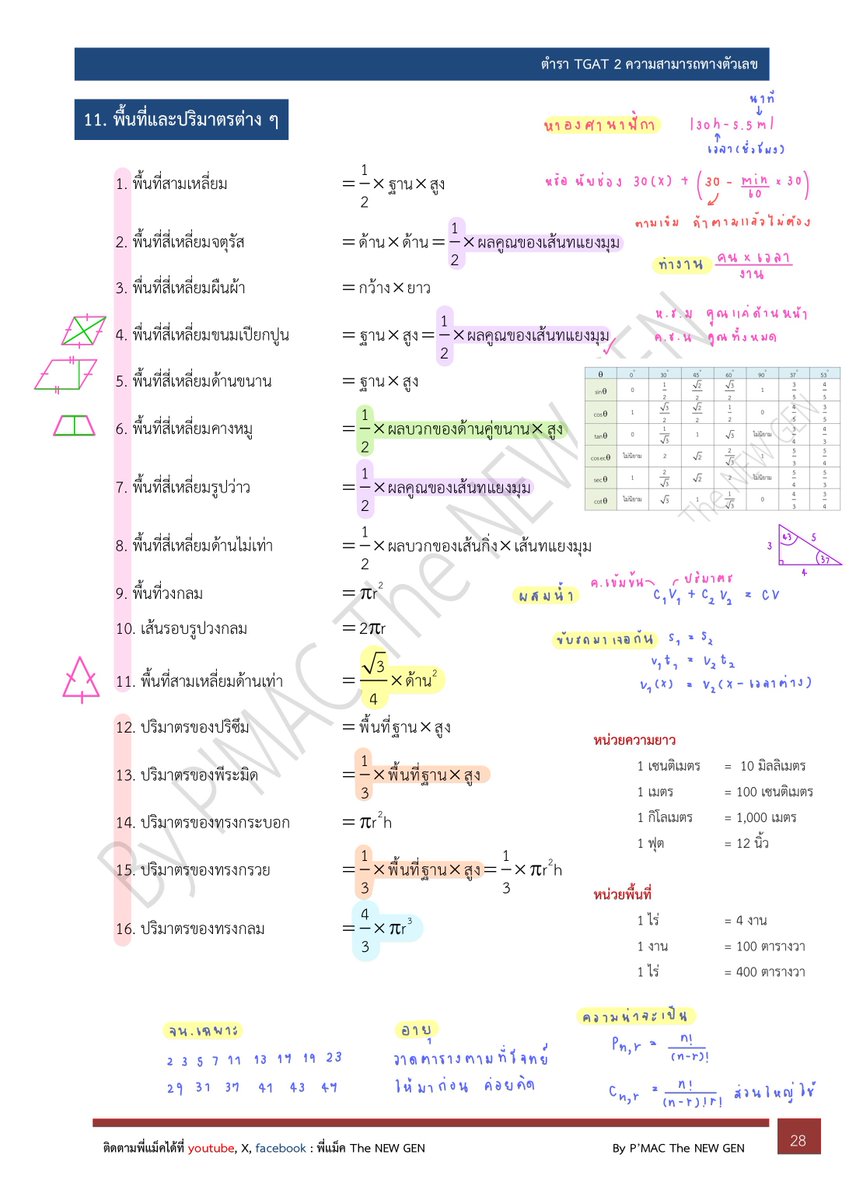 ตำรา TGAT 2 ความสามารถทางตัวเลข
11. พื้นที่และปริมาตรต่าง ๆ
นาที
หาองศานาฬิกา |30h-5.5m|
เวลา(ชั่วโมง)
หรือ นับช่อง 30(x) + (30 - min/60 × 30)
ตามเข็ม ถ้าตามแล้วไม่ต้อง
ทำงาน คน × เวลา / งาน
ห.ร.ม คูณแค่ด้านหน้า
ค.ร.น คูณทั้งหมด
1. พื้นที่สามเหลี่ยม = 1/2 × ฐาน × สูง
2. พื้นที่สี่เหลี่ยมจตุรัส = ด้าน × ด้าน = 1/2 × ผลคูณของเส้นทแยงมุม
3. พื่นที่สี่เหลี่ยมผืนผ้า = กว้าง × ยาว
4. พื่นที่สี่เหลี่ยมขนมเปียกปูน = ฐาน × สูง = 1/2 × ผลคูณของเส้นทแยงมุม
5. พื้นที่สี่เหลี่ยมด้านขนาน = ฐาน × สูง
6. พื้นที่สี่เหลี่ยมคางหมู = 1/2 × ผลบวกของด้านคู่ขนาน × สูง
7. พื้นที่สี่เหลี่ยมรูปว่าว = 1/2 × ผลคูณของเส้นทแยงมุม
8. พื้นที่สี่เหลี่ยมด้านไม่เท่า = 1/2 × ผลบวกของเส้นกิ่ง × เส้นทแยงมุม
9. พื้นที่วงกลม = πr²
10. เส้นรอบรูปวงกลม = 2πr
11. พื้นที่สามเหลี่ยมด้านเท่า = √3/4 × ด้าน²
12. ปริมาตรของปริซึม = พื้นที่ฐาน × สูง
13. ปริมาตรของพีระมิด = 1/3 × พื้นที่ฐาน × สูง
14. ปริมาตรของทรงกระบอก = πr²h
15. ปริมาตรของทรงกรวย = 1/3 × พื้นที่ฐาน × สูง = 1/3 × πr²h
16. ปริมาตรของทรงกลม = 4/3 × πr³
θ 0° 30° 45° 60° 90° 37° 53°
sinθ 0 1/2 √2/2 √3/2 1 3/5 4/5
cosθ 1 √3/2 √2/2 1/2 0 4/5 3/5
tanθ 0 1/√3 1 √3 ไม่นิยาม 3/4 4/3
cosecθ ไม่นิยาม 2 √2 2/√3 1 5/3 5/4
secθ 1 2/√3 √2 2 ไม่นิยาม 5/4 5/3
cotθ ไม่นิยาม √3 1 1/√3 0 4/3 3/4
3 5 37
4
ค.เข้มข้น ปริมาตร
ผสมน้ำ C₁V₁ + C₂V₂ = CV
ขับรถมาเจอกัน s₁ = s₂
v₁t₁ = v₂t₂
v₁(x) = v₂(x - เวลาต่าง)
หน่วยความยาว
1 เซนติเมตร = 10 มิลลิเมตร
1 เมตร = 100 เซนติเมตร
1 กิโลเมตร = 1,000 เมตร
1 ฟุต = 12 นิ้ว
หน่วยพื้นที่
1 ไร่ = 4 งาน
1 งาน = 100 ตารางวา
1 ไร่ = 400 ตารางวา
จน.เฉพาะ
2 3 5 7 11 13 17 19 23
29 31 37 41 43 47
อายุ
วาดตารางตามที่โจทย์
ให้มาก่อน ค่อยคิด
ความน่าจะเป็น
Pn,r = n!/(n-r)!
Cn,r = n!/(n-r)!r! ส่วนใหญ่ใช้
By P'MAC The NEW GEN
The NEW GEN
ติดตามพี่แม็คได้ที่ youtube, X, facebook : พี่แม็ค The NEW GEN
By P'MAC The NEW GEN
28